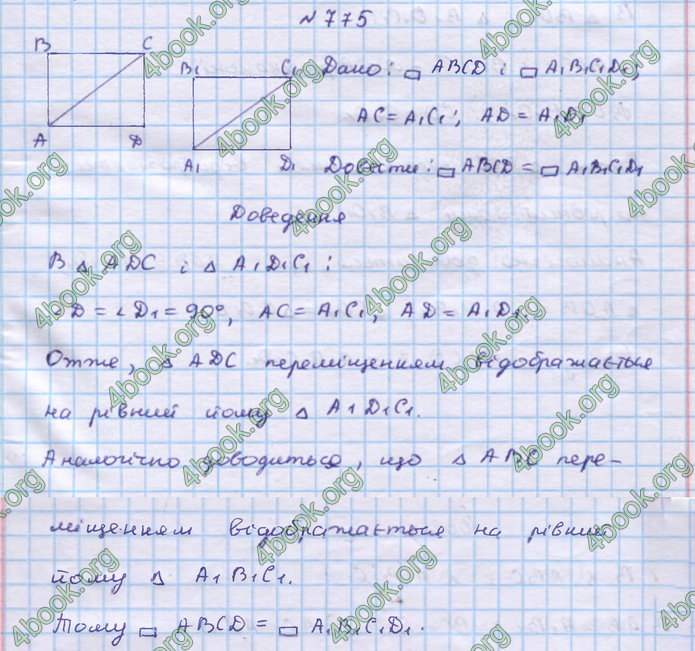 № 775
B C
B₁ C₁
A D
A₁ D₁
Дано: ▭ ABCD і ▭ A₁B₁C₁D₁;
AC = A₁C₁; AD = A₁D₁
Довести: ▭ ABCD = ▭ A₁B₁C₁D₁
Доведення
В △ ADC і △ A₁D₁C₁:
∠D = ∠D₁ = 90°, AC = A₁C₁, AD = A₁D₁.
Отже, △ ADC переміщенням відображається
на рівний йому △ A₁D₁C₁.
Аналогічно доводиться, що △ ABC пере-
міщенням відображається на рівний
йому △ A₁B₁C₁.
Тому ▭ ABCD = ▭ A₁B₁C₁D₁.
4book.org